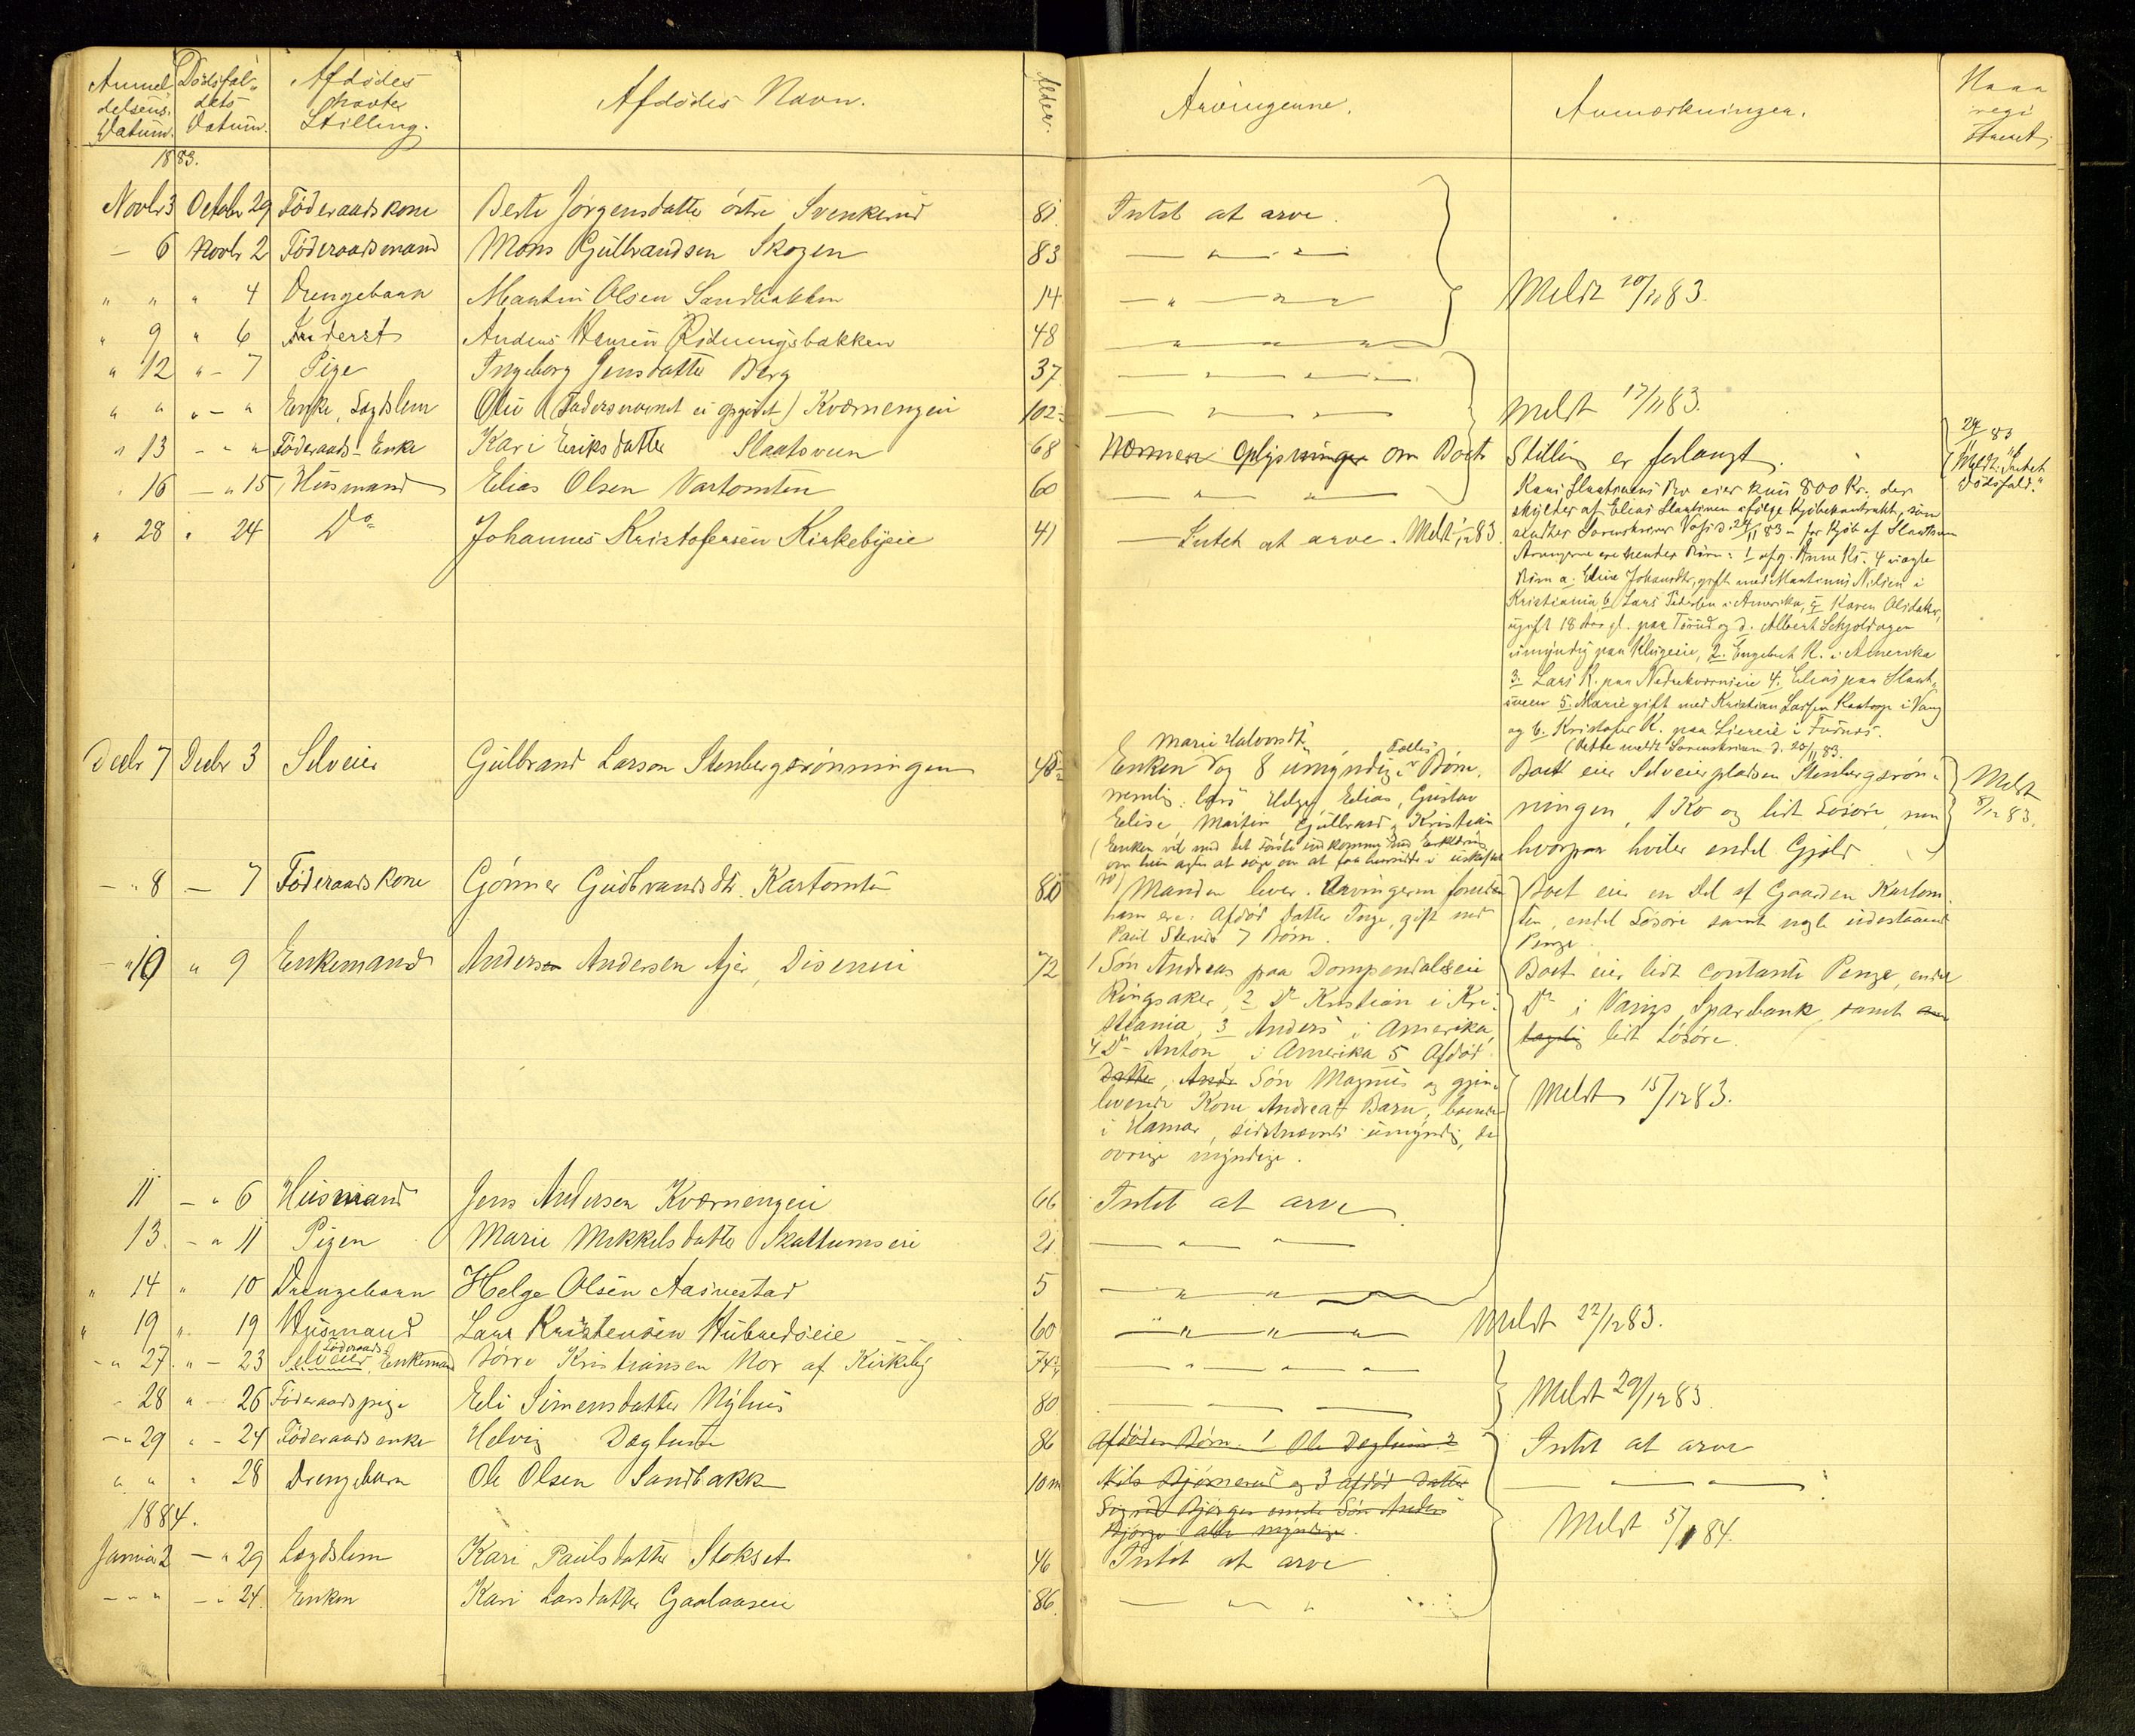 Anmel- Dødsfal- Afdødes
delsens dets havte Afdødes Navn. Alder.
Datum. Datum. Stilling.
1883.
Novbr 3 Octobr 29 Föderaadskone Berte Jörgensdatter östre Svenkerud 81
— 6 Novbr 2 Föderaadsmand Mons Gulbrandsen Skogen 83
" " " 4 Drengebarn Martin Olsen Sandbakken 14
" 9 " 6 Inderst Anders Hansen Rödningsbakken 48
" 12 " - 7 Pige Ingeborg Jensdatter Berg 37
" " " - " Enke, Lægdslem Oliv (Fadersnavnet ei opgivet) Kværnengen 102
" 13 - " " Föderaads-Enke Kari Eriksdatter Slaatsveen 68
" 16 - " 15 Husmand Elias Olsen Vartomten 60
" 28 " 24 Do Johannes Kristofersen Kirkebyeie 41
Decbr 7 Decbr 3 Selveier Gulbrand Larson Stenbergsrönningen 48
- " 8 — 7 Föderaadskone Gönner Gudbrandsdtr. Kartomten 80
- " 10 " 9 Enkemand Anders Andersen Ajer, Diseneie 72
11 - " 6 Husmand Jens Andersen Kværnengen 66
13 - " 11 Pigen Marie Mikkelsdatter Skattumseie 21
" 14 " 10 Drengebarn Helge Olsen Aasmestad 5
" 19 " 19 Husmand Lars Kristensen Hubredseie 60
Föderaads-
- " 27 " - 23 Selveier, Enkemand Börre Kristiansen Nor af Kirkeby 74
" 28 " - 26 Föderaadspige Eli Simensdatter Nyhus 80
- " 29 " - 24 Föderaadsenke Helvig Døglund 86
" " " 28 Drengebarn Ole Olsen Sandbakk 10m
1884.
Januar 2 - " 29 Lægdslem Kari Paulsdatter Stokset 46
- " " - " 24 Enken Kari Larsdatter Gaalaaseie 86
Arvingerne. Anmærkninger.
Intet at arve.
— " — " —
— " — " — Meldt 10/11 83.
— " — " —
— " — " —
— " — " — Meldt 17/11 83.
Nærmere Oplysninger om Boets Stilling er forlangt.
24/11 83
Meldt "Intet
Dödsfald."
— " — " —
— Intet at arve. Meldt 1/12 83.
Kari Slaatsveens Bo eier kun 800 Kr. der
skyldes af Elias Slaatsveen ifölge Kjöbekontrakt, som
Arvingerne ere hendes Börn: 1 afg. Anne K's. 4 ægte
Börn a. Eline Johansdtr, gift med Martinus Nilsen i
Kristiania, b. Lars Pedersen i Amerika, c. Karen Olsdatter,
ugift 18 Aar gl. paa Torud og d. Albert Schjoldagen
umyndig paa Klugeeie, 2. Engebret K. i Amerika
3. Lars K. paa Nedrekværneie 4. Elias paa Slaat-
sveen 5. Marie gift med Kristian Larsen Kastorp i Vang
og 6. Kristofer K. paa Liereie i Furnes.
(Dette meldt Sorenskriveren d. 20/11 83.
Marie Halvorsdtr. Fælles
Enken og 8 umyndige Börn,
nemlig: Lars, Helge, Elias, Gustav
Elise, Martin Gulbrand, Kristian
(Enken vil med det förste indkomme med Erklæring
om hun agter at söge om at faa hensidde i uskiftet
Bo)
Boet eier Selveierpladsen Stenbergsrön-
ningen, 1 Ko og lidt Lösöre, men
hvorpaa hviler endel Gjæld
Meldt
8/12 83.
Manden lever. Arvingerne foruden
ham ere: Afdöd Datter Inge, gift med
Paul Stensrud 7 Börn.
Boet eier en Del af Gaarden Kartom-
ten, endel Lösöre samt nogle udestaaende
Penge.
1 Sön Andreas paa Dompendaleie
Ringsaker, 2 Do Kristian i Kri-
stiania, 3 Anders i Amerika,
4 Do Anton i Amerika 5 Afdöd
Datter, Andr Sön Magnus og gjen-
levende Kone Andrea's Barn, boende
i Hamar, sidstnævnte umyndig, de
övrige myndige.
Boet eier lidt contante Penge, endel
Do i Vangs Sparebank samt
lidt Lösöre.
Meldt 15/12 83.
Intet at arve
— " — " —
— " — " —
— " — " — Meldt 22/12 83.
— " — " —
— " — " — Meldt 29/12 83.
Afdödes Börn: 1 Ole Døglund 2 Intet at arve
Nils Björnerud og 3 afdöd Datter — " — " —
Sigrid Bjørges eneste Sön Anders
Bjørge alle myndige. Meldt 5/1 84.
Intet at arve
— " — " —